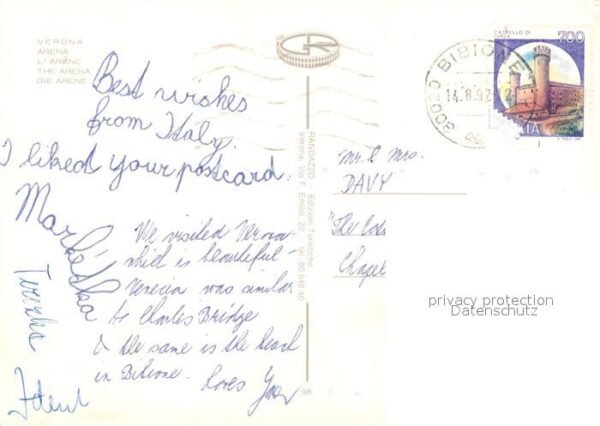 VERONA
ARENA
L' ARÈNE
THE ARENA
DIE ARENE
Best wishes
from Italy.
I liked your postcard.
Markétka
Terezka
Zdeně
We visited Verona
which is beautiful
Venecia was similar
to Charles Bridge
& the same is the beach
in Bibione.
Loves
RANDAZZO - Edizioni Turistiche
Verona, Via F. Emilei, 22 tel.
98
GR
30020 BIBIONE
14.8.92
CASTELLO DI
700
ITALIA
Mr. & Mrs.
DAVY
"The
Chapel
privacy protection
Datenschutz